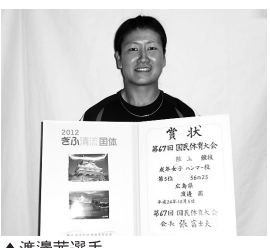 2012
ぎふ清流国体
賞状
第67回 国民体育大会
陸上 競技
成年女子 ハンマー投
第5位 56m25
広島県
渡邊 茜
平成24年10月5日
第67回 国民体育大会
会長 張 富士夫
▲渡邊茜選手